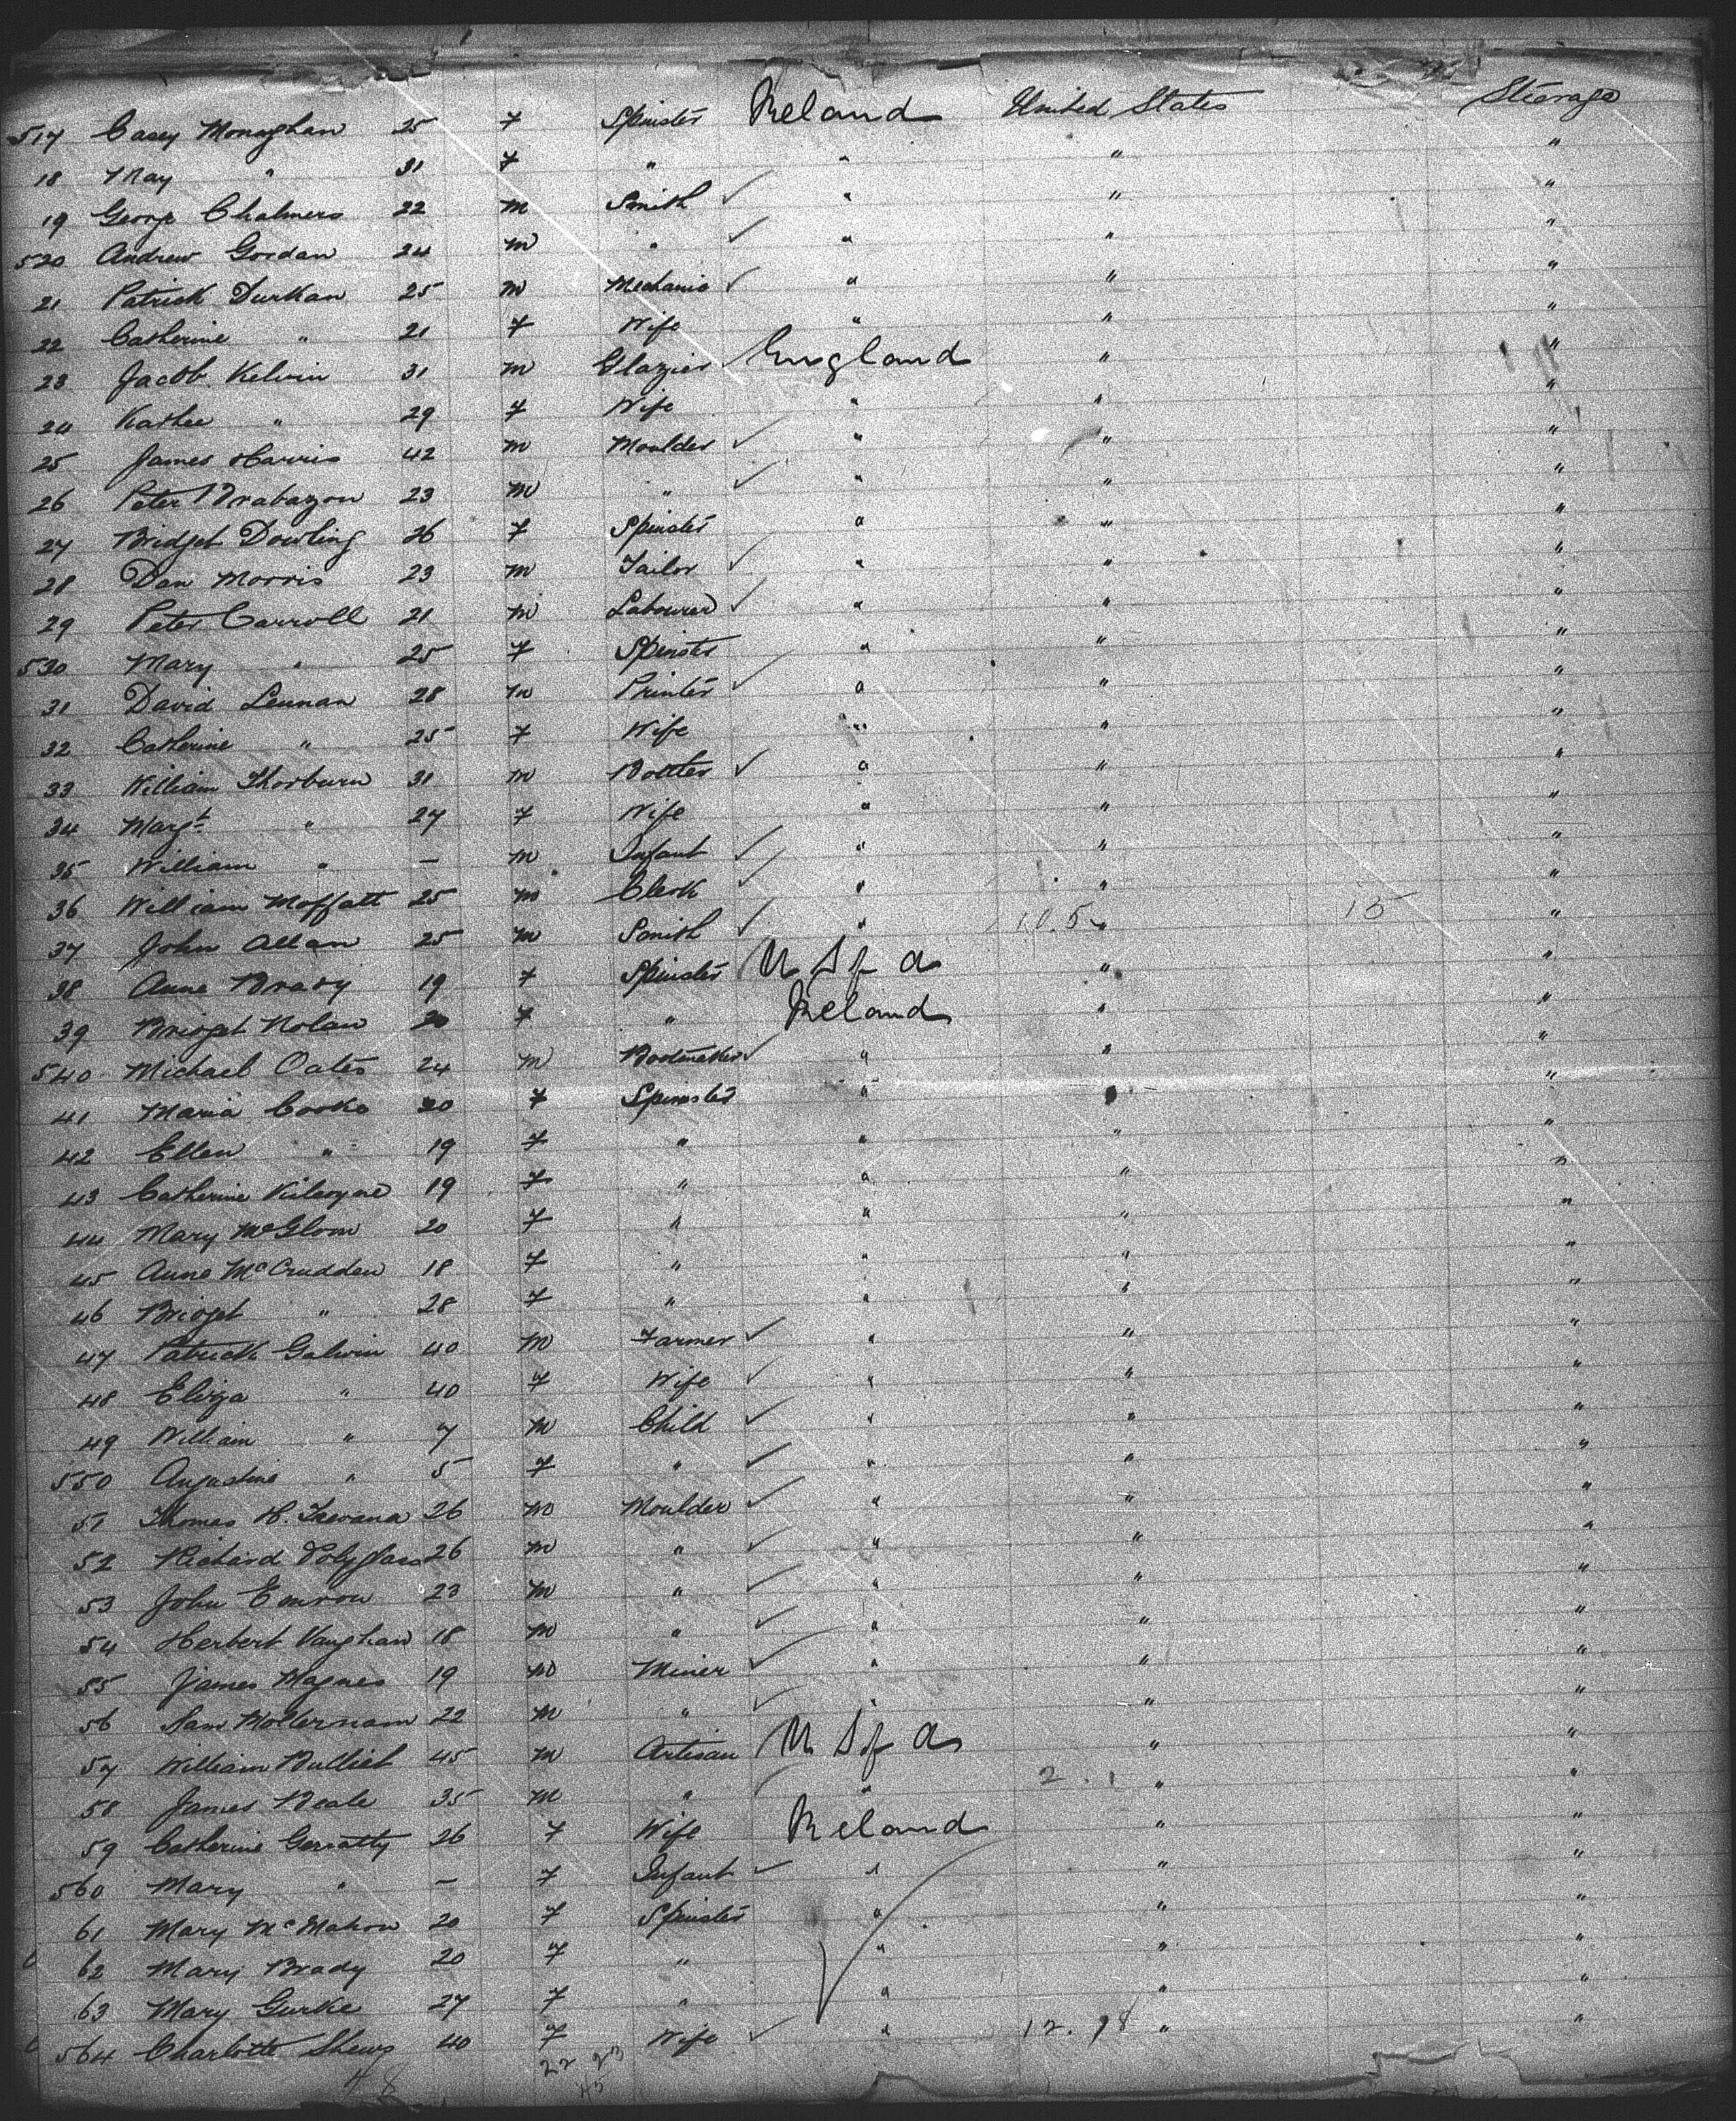 517 Casey Monaghan 25 F Spinster Ireland United States Steerage
18 May " 31 F " " " "
19 George Chalmers 22 M Smith ✓ " " "
520 Andrew Gordan 24 M " ✓ " " "
21 Patrick Durkan 25 M Mechanic ✓ " " "
22 Catherine " 21 F Wife " " "
23 Jacob Kelvin 31 M Glazier England " "
24 Kathee " 29 F Wife " " "
25 James Harris 42 M Moulder ✓ " " "
26 Peter Brabazon 23 M " ✓ " " "
27 Bridget Dowling 26 F Spinster " " "
28 Dan Morris 23 M Tailor ✓ " " "
29 Peter Carroll 21 M Labourer ✓ " " "
530 Mary " 25 F Spinster " " "
31 David Lennan 28 M Printer ✓ " " "
32 Catherine " 25 F Wife " " "
33 William Thorburn 31 M ✓ " " "
34 Margt " 27 F Wife " " "
35 William " — M Infant ✓ " " "
36 William Moffatt 25 M Clerk ✓ " " "
37 John Allan 25 M Smith ✓ " 10.5 " 15 "
38 Anne Brady 19 F Spinster U S of A " "
39 Bridget Nolan 20 F " Ireland " "
540 Michael Oates 24 M Bootmaker ✓ " " "
41 Maria Cooke 20 F Spinster " " "
42 Ellen " 19 F " " " "
43 Catherine Kilcoyne 19 F " " " "
44 Mary McGlom 20 F " " " "
45 Anne McCrudden 18 F " " " "
46 Bridget " 28 F " " " "
47 Patrick Galvin 40 M Farmer ✓ " " "
48 Eliza " 40 F Wife ✓ " " "
49 William " 7 M Child ✓ " " "
550 Augastine " 5 F " ✓ " " "
51 Thomas H. 26 M Moulder ✓ " " "
52 Richard Polyglass 26 M " ✓ " " "
53 John 23 M " ✓ " " "
54 Herbert Vaughan 18 M " ✓ " " "
55 James Magnes 19 M Miner ✓ " " "
56 Sam 22 M " ✓ " " "
57 William 45 M Artisan U S of A " "
58 James Beale 35 M " " 2.1 " "
59 Catherine Gerratty 26 F Wife Ireland " "
560 Mary " — F Infant ✓ " " "
61 Mary McMahon 20 F Spinster " " "
62 Mary Brady 20 F " " " "
63 Mary Gurke 27 F " ✓ " " "
564 Charlotte Shews 40 F Wife ✓ " 12.18 " "
48 22 23
45